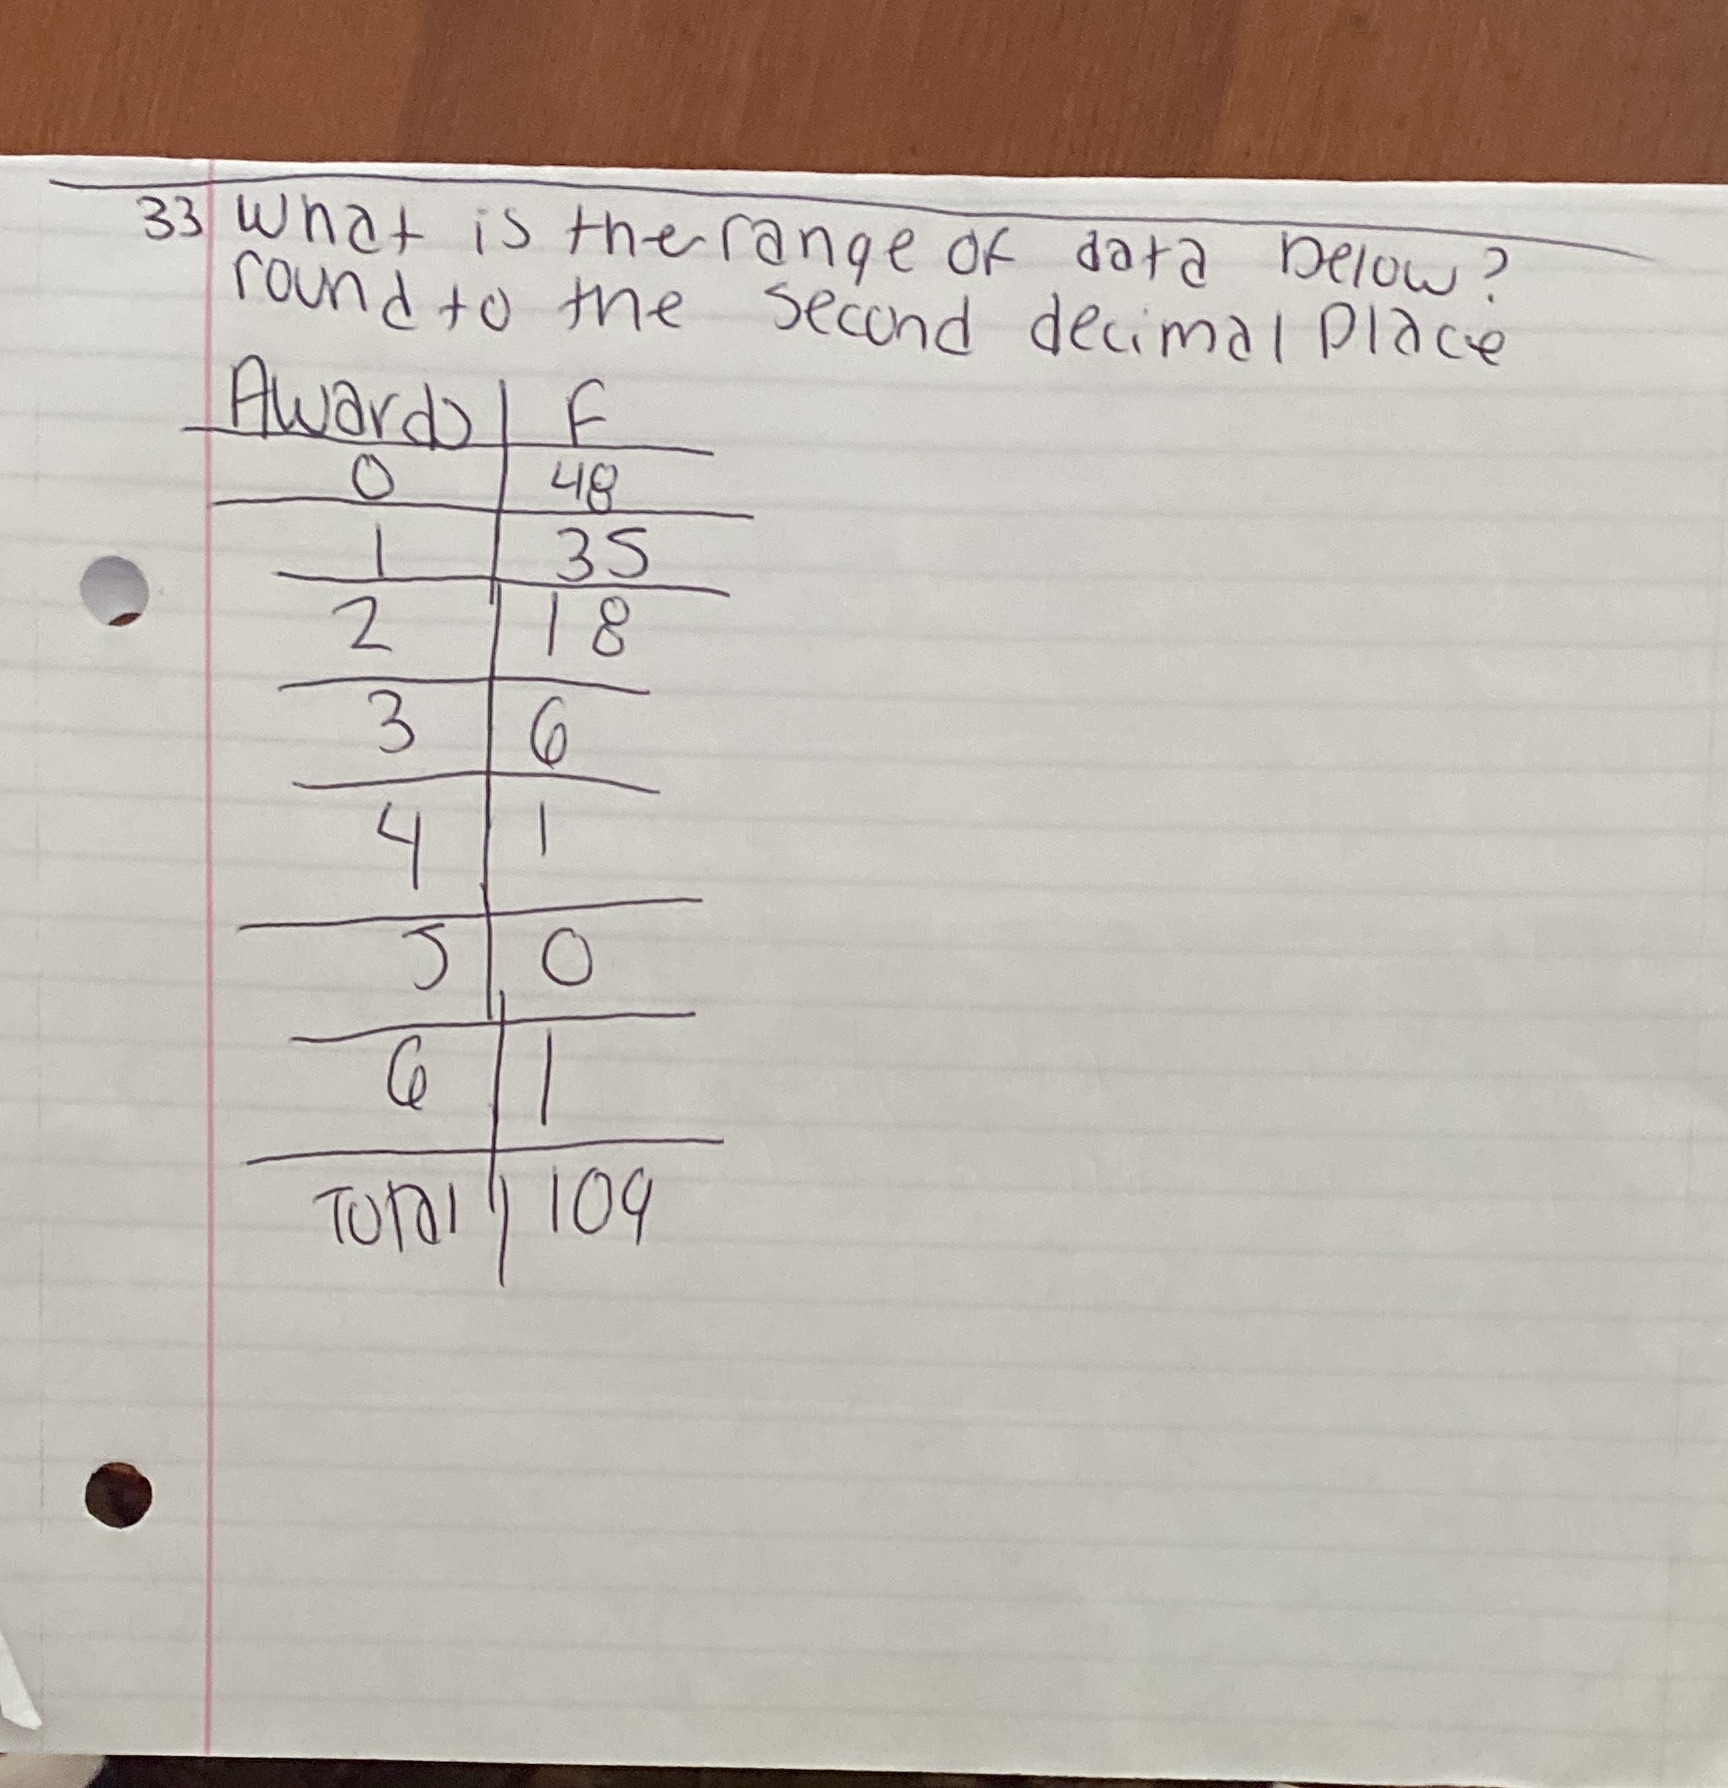 33 What is the range of data below?
round to the second decimal place
Awards F
0 48
1 35
2 18
3 6
4 1
5 0
6 1
Total 109